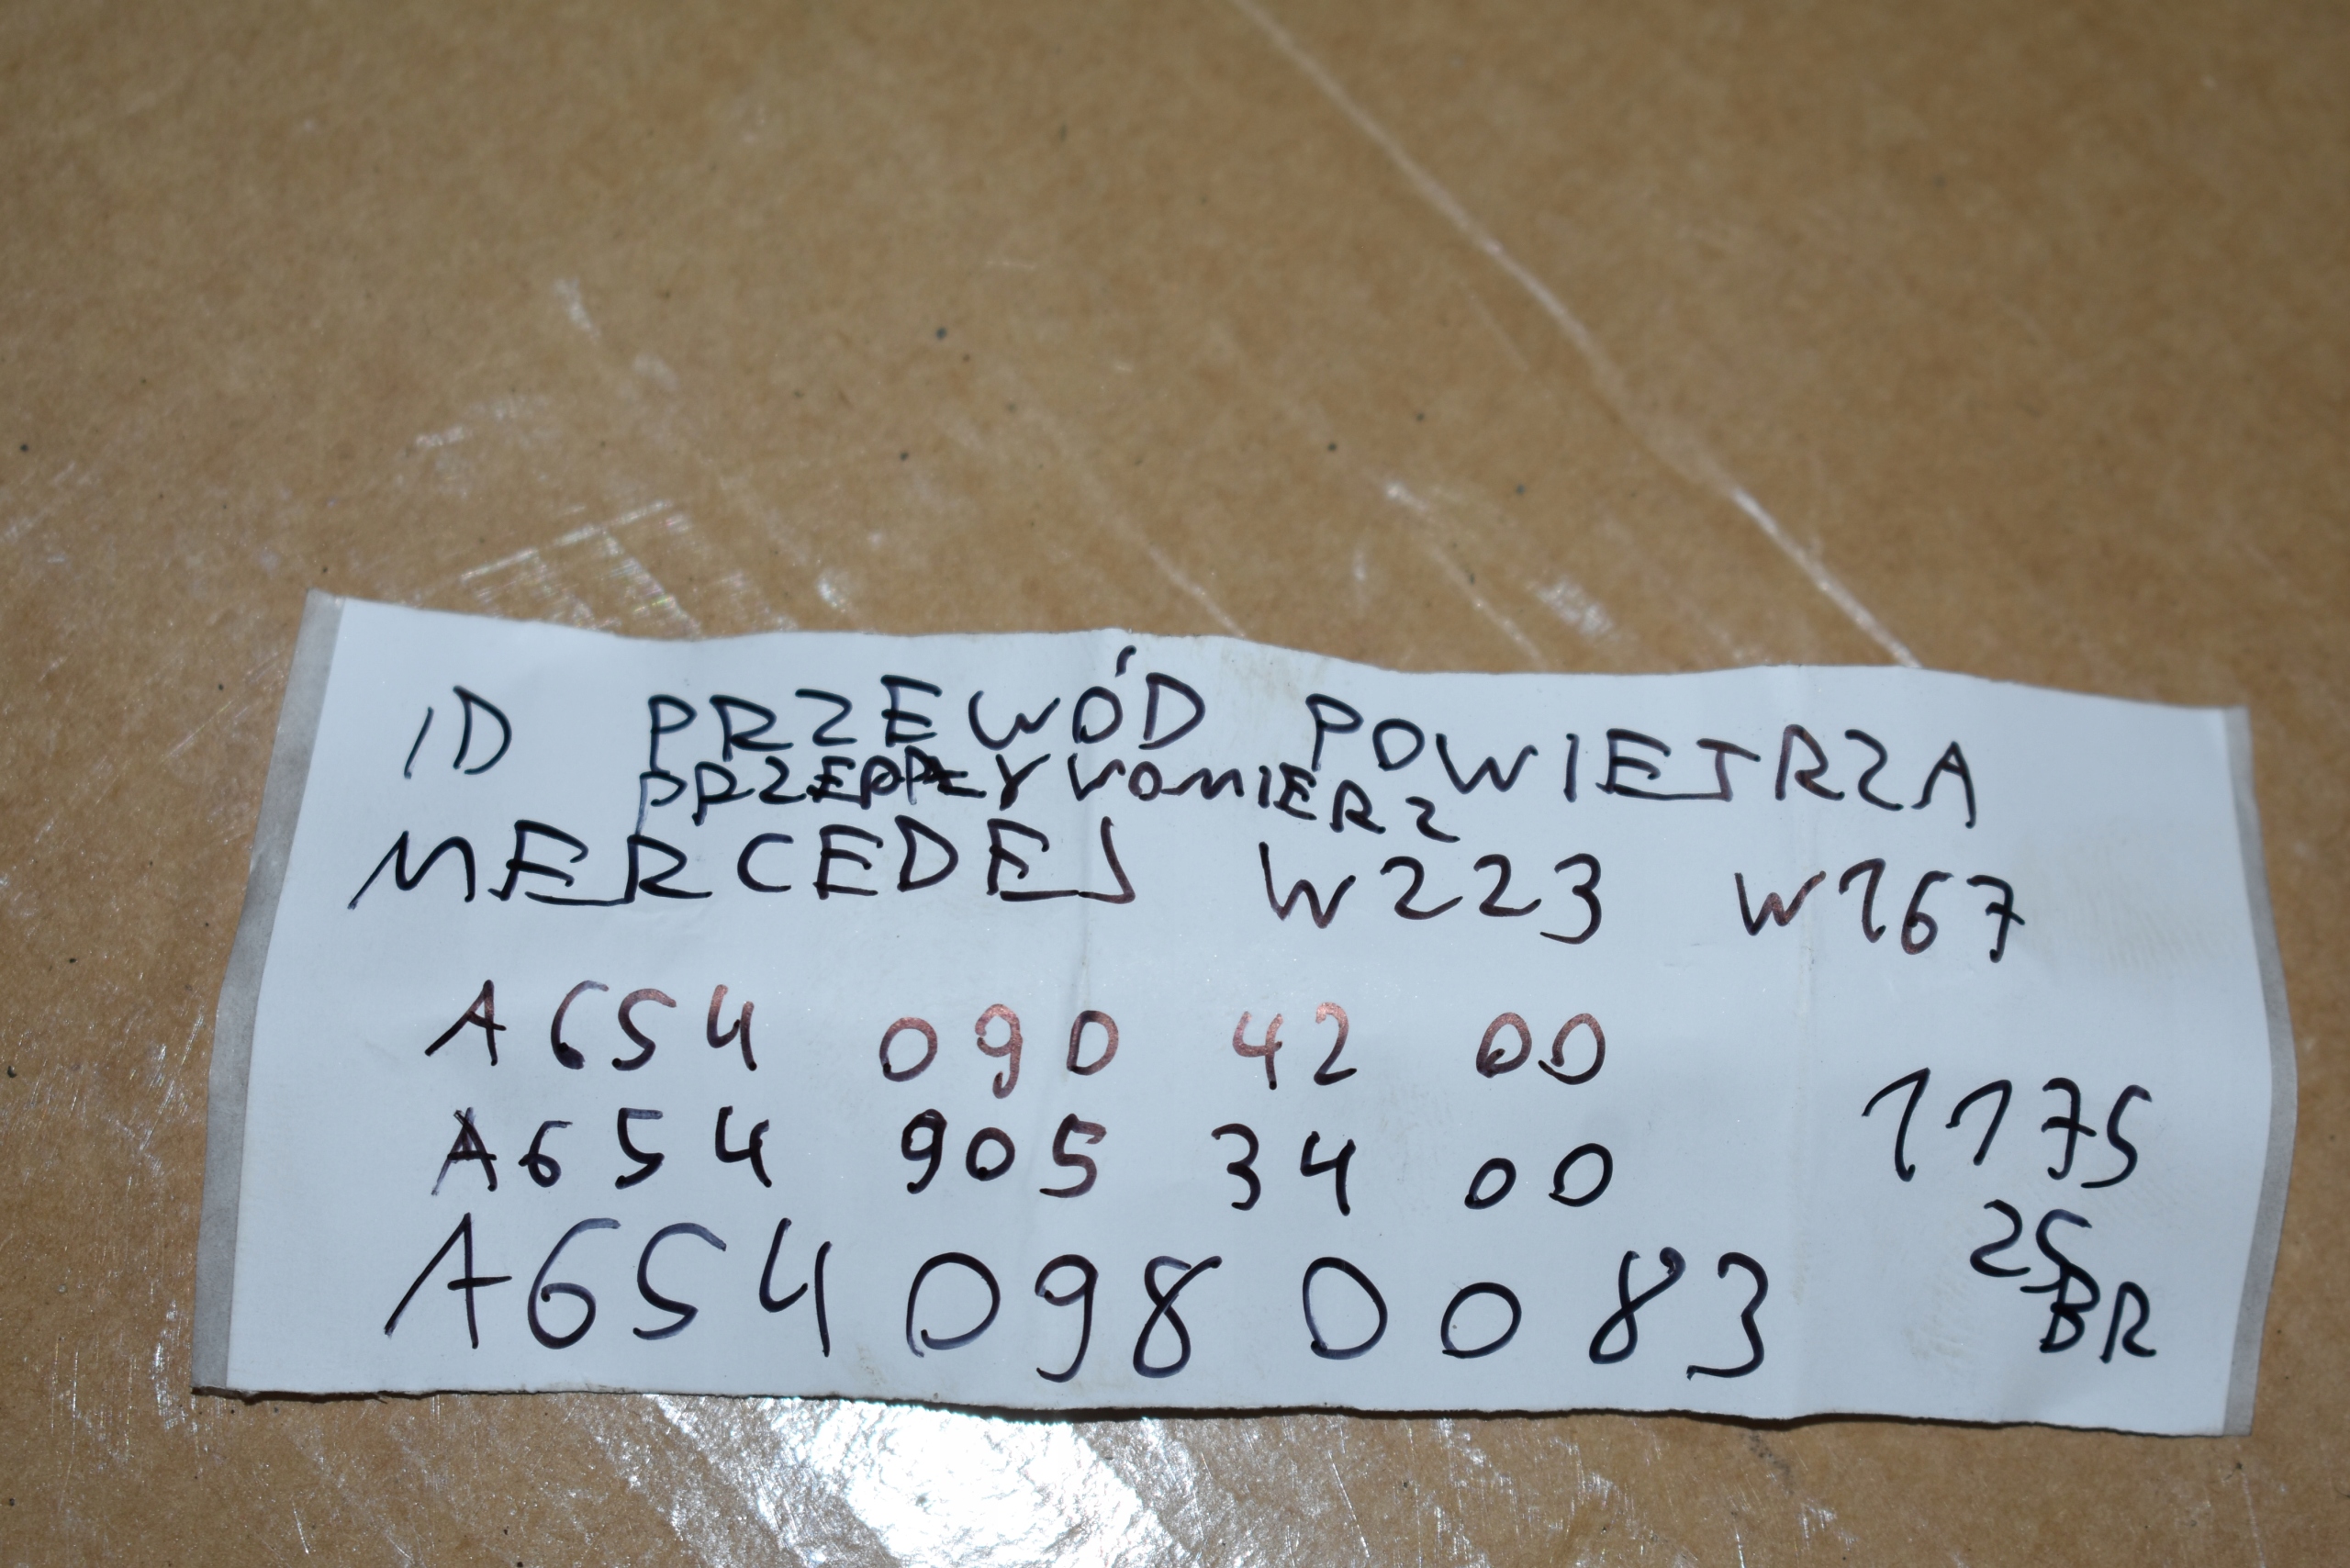 ID PRZEWÓD POWIETRZA
PRZEPPŁYWOMIERZ
MERCEDES W223 W167
A654 090 42 00
A654 905 34 00
A654 098 00 83
1175
25
BR